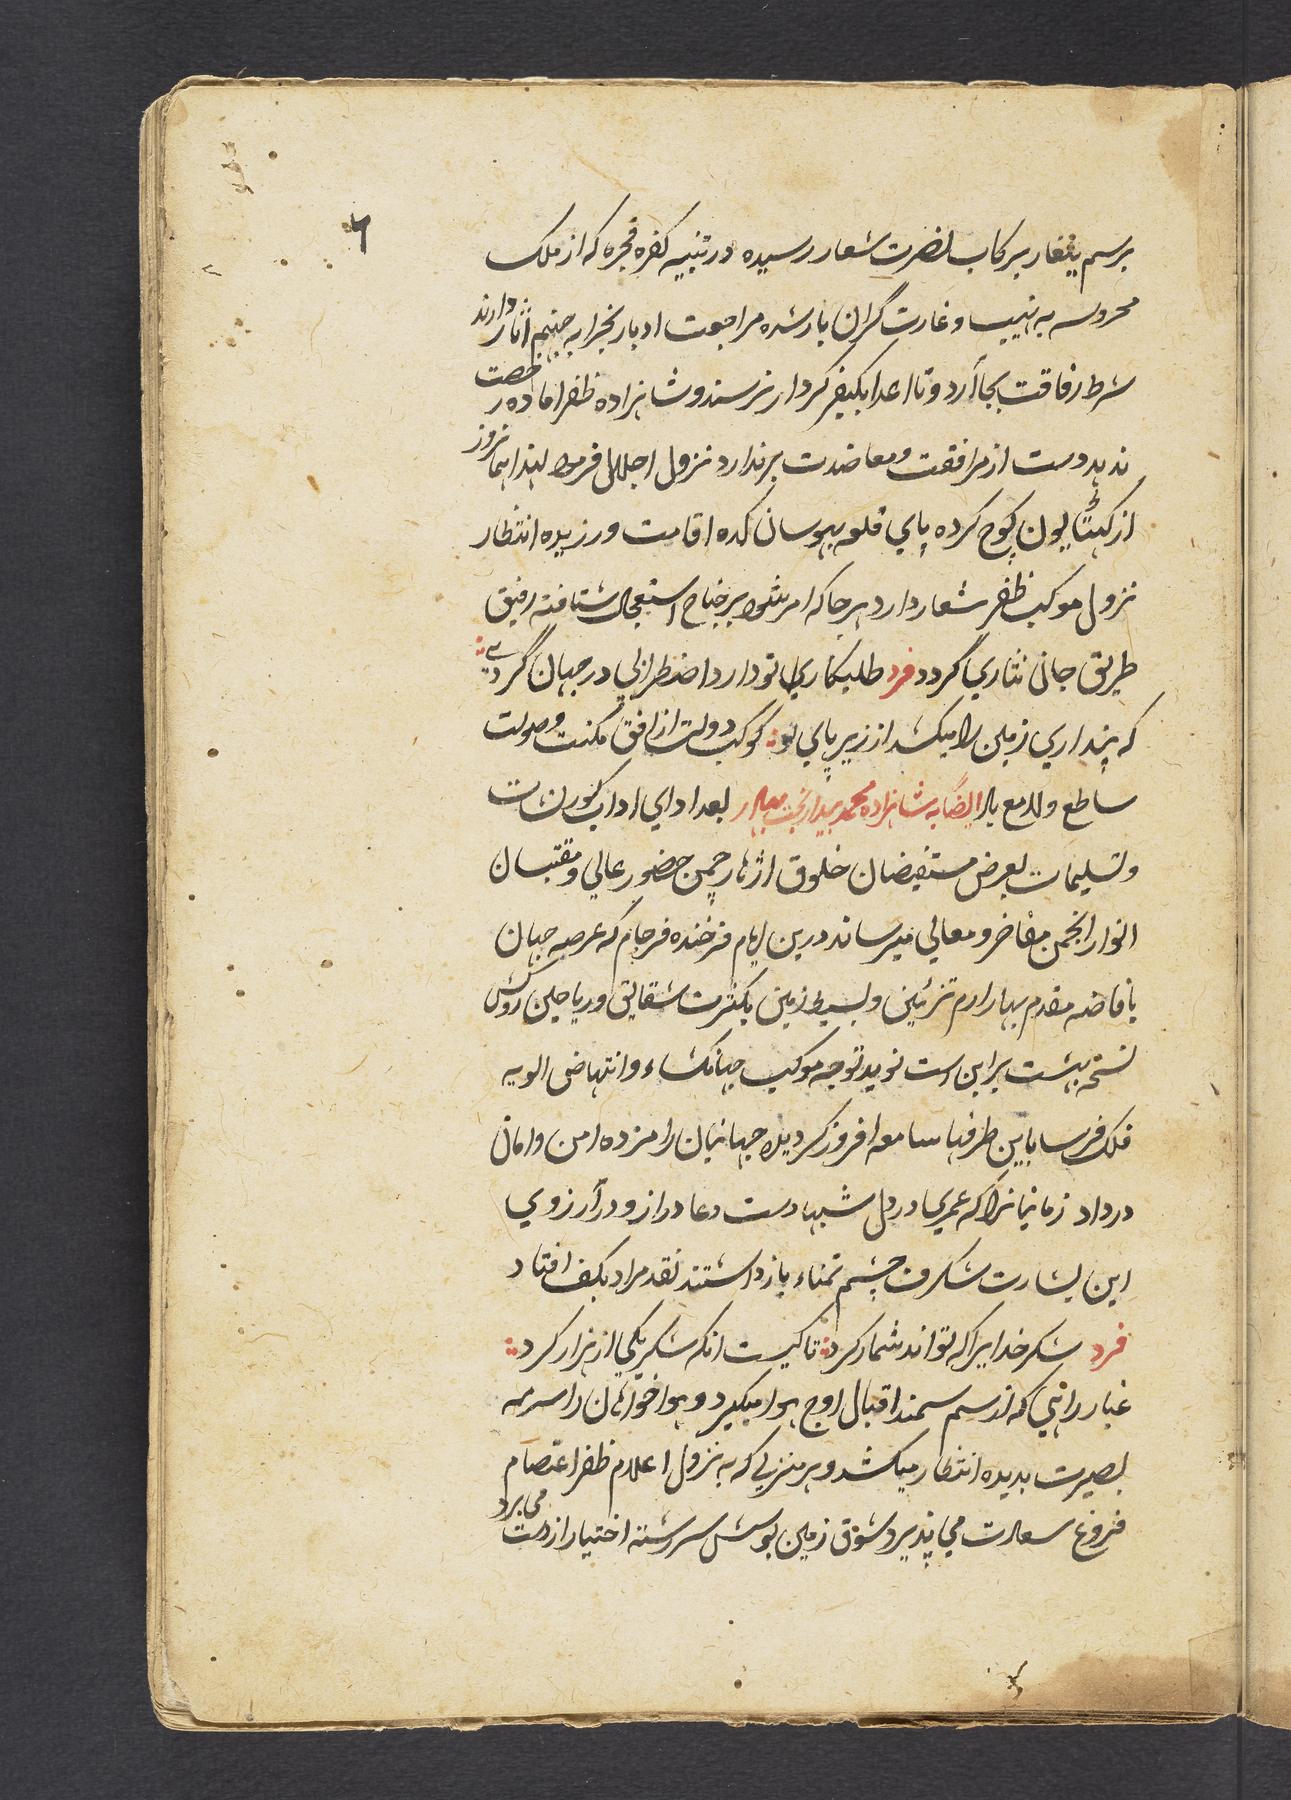 ٦
برسم یلغار برکاب نصرت شعار رسیده در تنبیه کفره فجره که از ملک
محروسه به نهیب و غارت گران بار شده مراجعت ادبار بخرابه جهنم آثار دارند
شرط رفاقت بجا آرد و تا اعدا بکیفر کردار نرسند و شاهزاده ظفر اماده رخصت
ندهد دست از مرافقت و معاضدت برندارد نزول اجلال فرمود لهذا همانروز
از کوچ کرده پای قلعه اقامت ورزیده انتظار
نزول موکب ظفر شعار دارد هرجا که امر شود بر جناح استعجال شتافته رفیق
طریق جان نثاری گردد فرد طلبکاری تو دارد اضطرابی در جهان گردی
که پنداری زمین را میکشد از زیر پای تو کوکب دولت از افق مکنت و صولت
ساطع و لامع باد ایضا به شاهزاده محمد بیدار بخت بهادر بعد ادای اداب کورنشات
و تسلیمات بعرض مستفیضان خلوق ازهار چمن حضور عالی و مقتبسان
انوار انجمن مفاخر و معالی میرساند درین ایام فرخنده فرجام که عرصه جهان
بافاضه مقدم بهار ارم تزئین و بسیط زمین بکثرت شقایق و ریاحین روکش
نسخه بهشت برین است نوید توجه موکب جهانکشاء و انتهاض الویه
فلک فرسا باین طرفها سامعه افروز کردیده جهانیان را مژده امن و امان
در داد زمانیانرا که عمری در دل شبها دست دعا دراز و در آرزوی
این بشارت شکرف چشم تمناء باز داشتند نقد مراد بکف افتاد
فرد شکر خدایرا که تواند شمار کرد تا کیست انکه شکر یکی از هزار کرد
غبار راهی که از سم سمند اقبال اوج هوا میکیرد و هوا خواهان را سرمه
بصیرت بدیده انتظار میکشد و هر منزلی که به نزول اعلام ظفر اعتصام
فروغ سعادت می پذیرد شوق زمین بوسش سررشته اختیار از دست می برد